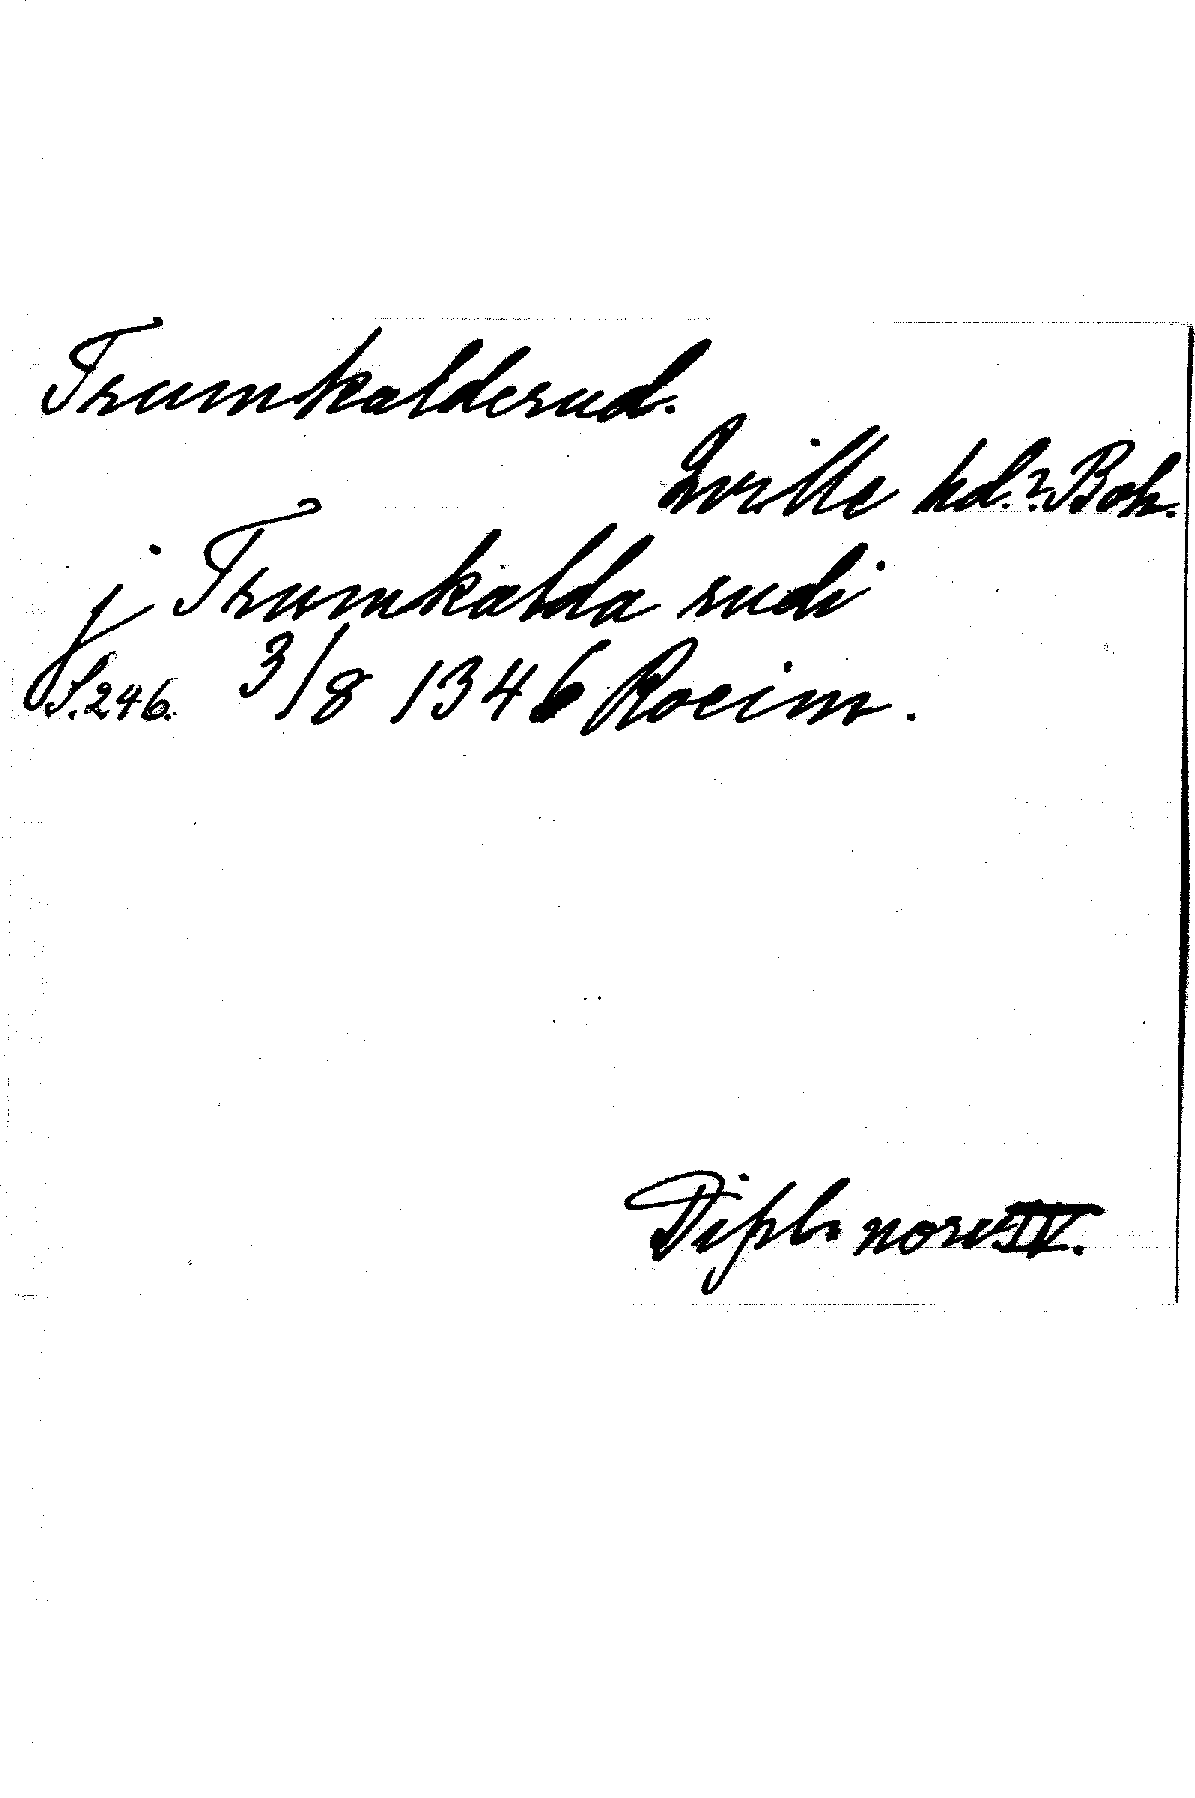 Trumkalderud.
Qville hd.? Boh.
j Trumkalda rudi
S.246. 3/8 1346 Roeim.
Dipl. norv IV.